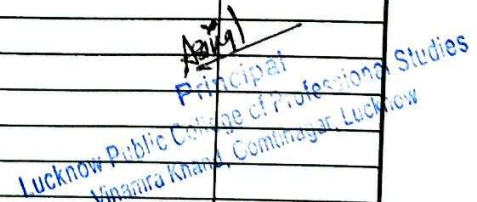 Principal
Lucknow Public College of Professional Studies
Vinamra Khand, Gomtinagar, Lucknow